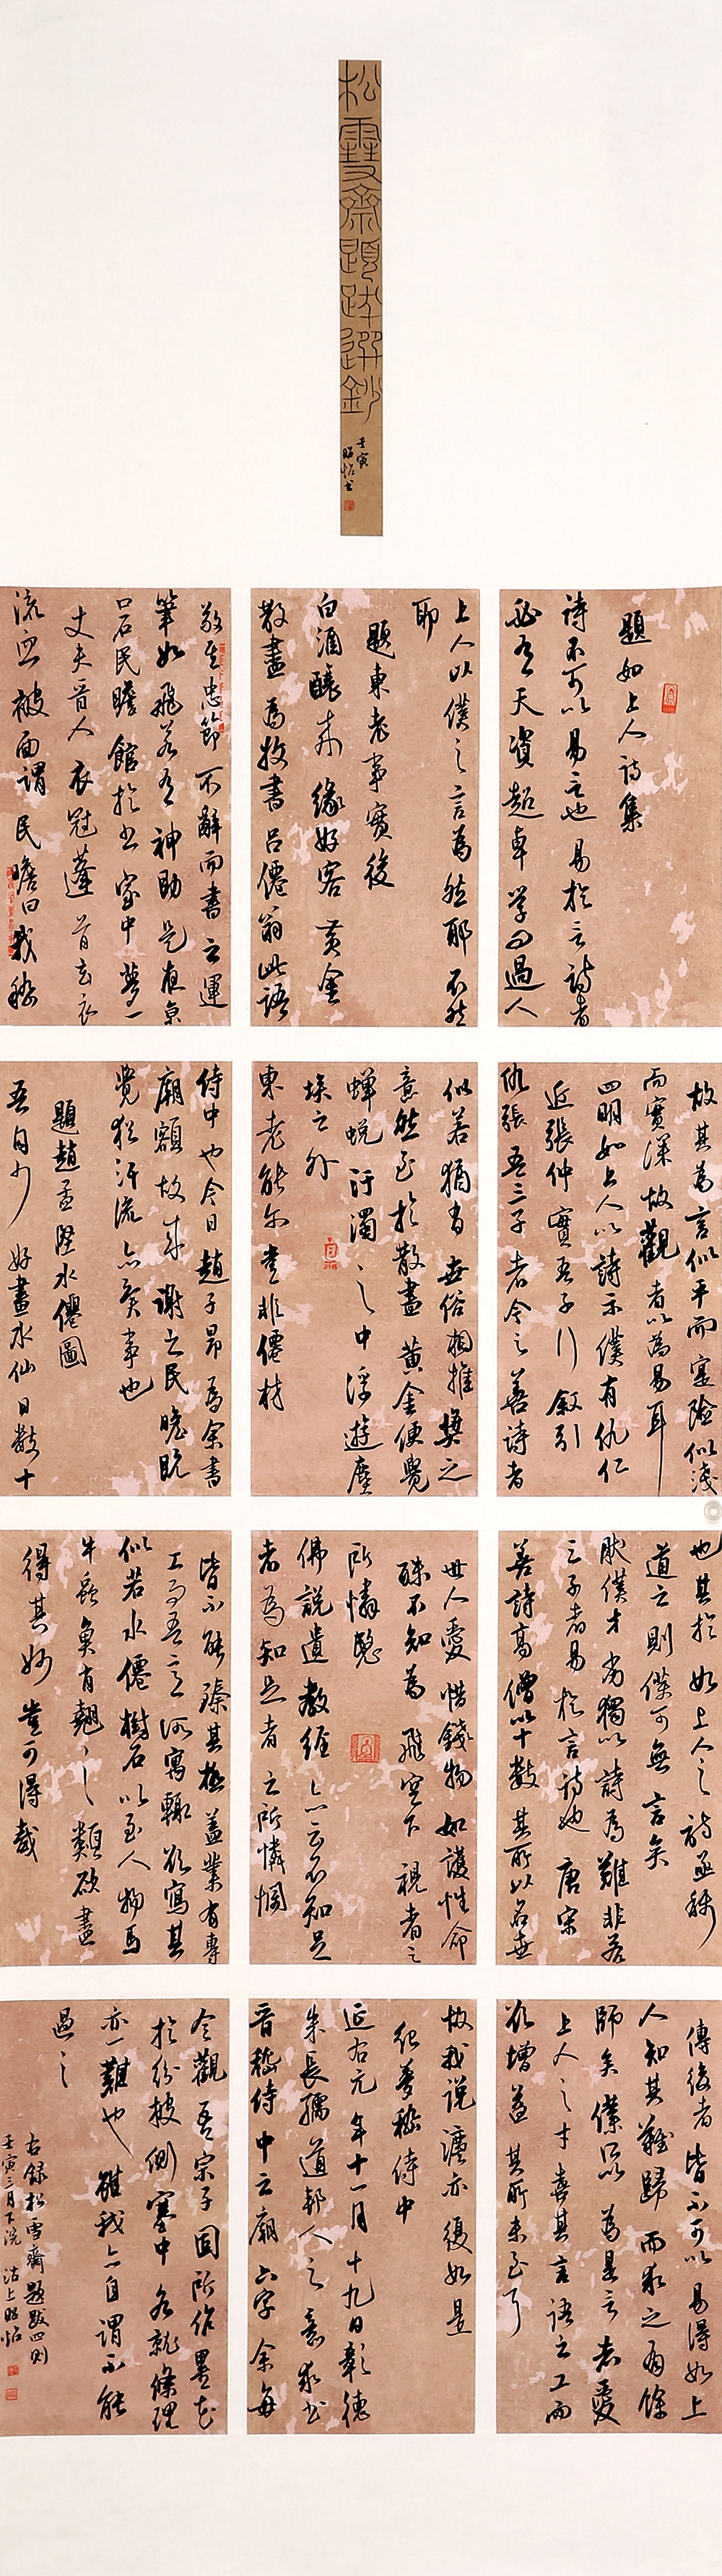 松雪齋題跋選鈔
壬寅
昭怡書
題如上人詩集
詩不可以易言也易於言詩者
必有天資超卓學問過人
故其為言似平而寔險似淺
而實深故觀者以為易耳
四明如上人以詩示僕有仇仁
近張仲實吾子行敘引
仇張吾三子者今之善詩者
也其於如上人之詩亟稱
道之則僕可無言矣
然僕才劣獨以詩為難非若
三子者易於言詩也唐宋
善詩高僧以十數其所以名世
傳後者皆不可以易得如上
人知其難歸而求之有餘
師矣僕所以為是言者愛
上人之才喜其言語之工而
欲增益其所未至耳
上人以僕之言為然耶不然
耶
題東老事實後
白酒釀來緣好客黃金
散盡為收書呂僊翁此語
似若猶有世俗相推獎之
意然至於散盡黃金便覺
蟬蛻汙濁之中浮遊塵
埃之外
東老能尔豈非僊材
世人愛惜錢物如護性命
殊不知為飛空下視者之
所憐愍
佛說遺教經亦云不知足
者為知足者之所憐憫
故我說亦復如是
記夢嵇侍中
延右元年十一月十九日彰德
朱長孺道邦人之意求書
晉嵇侍中之廟六字余每
敬其忠節不辭而書之運
筆如飛若有神助是夜京
口石民瞻館於書室中夢一
丈夫晉人衣冠蓬首玄衣
流血被面謂民瞻曰我嵇
侍中也今日趙子昂為余書
廟額故來謝之民瞻既
覺猶汗流亦異事也
題趙孟堅水僊圖
吾自少好畫水仙日數十
皆不能臻其極蓋業有專
工而吾意所寓輒欲寫其
似若水僊樹石以至人物馬
牛蟲魚肖翹之類欲盡
得其妙豈可得哉
今觀吾宗子固所作墨花
於紛披側塞中各就條理
亦一難也雖我亦自謂不能
過之
右錄松雪齋題跋四則
壬寅三月下浣沽上昭怡